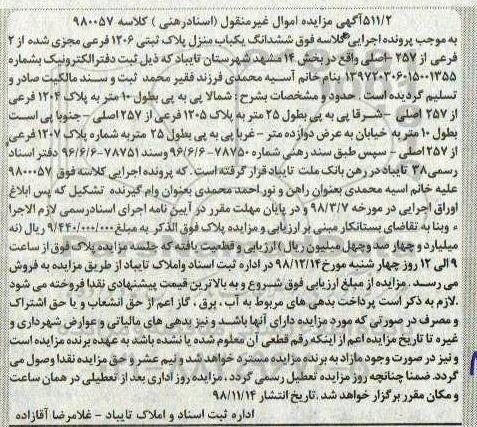 ۵۱۱/۲آگهی مزایده اموال غیرمنقول (اسنادرهنی ) کلاسه ۹۸۰۰۵۷
به موجب پرونده اجرایی کلاسه فوق ششدانگ یکباب منزل پلاک ثبتی ۱۲۰۶ فرعی مجزی شده از ۲
فرعی از ۲۵۷ -اصلی واقع در بخش ۱۴ مشهد شهرستان تایباد که ذیل ثبت دفترالکترونیک بشماره
۱۳۹۷۲۰۳۰۶۰۱۵۰۰۱۳۵۵ بنام خانم آسیه محمدی فرزند فقیر محمد ثبت و سند مالکیت صادر و
تسلیم گردیده است . حدود و مشخصات بشرح : شمالا پی به پی بطول ۱۰ متر به پلاک ۱۲۰۴ فرعی
از ۲۵۷ اصلی - شرقا پی به پی بطول ۲۵ متر به پلاک ۱۲۰۵ فرعی از ۲۵۷ اصلی - جنوبا پی است
بطول ۱۰ متر به خیابان به عرض دوازده متر - غربا پی به پی بطول ۲۵ متربه شماره پلاک ۱۲۰۷ فرعی
از ۲۵۷ اصلی - سپس طبق سند رهنی شماره ۷۸۷۵۰-۹۶/۶/۶ وسند ۷۸۷۵۱-۹۶/۶/۶ دفتر اسناد
رسمی۳۸ تایباد در رهن بانک ملت تایباد قرار گرفته است . که پرونده اجرایی کلاسه فوق ۹۸۰۰۰۵۷
علیه خانم اسیه محمدی بعنوان راهن و نور احمد محمدی بعنوان وام گیرنده تشکیل که پس ابلاغ
اوراق اجرایی در مورخه ۹۸/۳/۷ و در پایان مهلت مقرر در آیین نامه اجرای اسنادرسمی لازم الاجرا
، وبنا به تقاضای بستانکار مبنی بر ارزیابی و مزایده پلاک فوق الذکر به مبلغ۹/۴۴۰/۰۰۰/۰۰۰ ریال (نه
میلیارد و چهار صد وچهل میلیون ریال ) ارزیابی و قطعیت یافته که جلسه مزایده پلاک فوق از ساعت
۹ الی ۱۲ روز چهار شنبه مورخ۹۸/۱۲/۱۴ در اداره ثبت اسناد واملاک تایباد از طریق مزایده به فروش
می رسد . مزایده از مبلغ ارزیابی فوق شروع و به بالاترین قیمت پیشنهادی نقدا فروخته می شود
.لازم به ذکر است پرداخت بدهی های مربوط به آب ، برق ، گاز اعم از حق انشعاب و یا حق اشتراک
و مصرف در صورتی که مورد مزایده دارای آنها باشد و نیز بدهی های مالیاتی و عوارض شهرداری و
غیره تا تاریخ مزایده اعم از اینکه رقم قطعی آن معلوم شده یا نشده باشد به عهده برنده مزایده است
و نیز در صورت وجود مازاد به برنده مزایده مسترد خواهد شد و نیم عشر و حق مزایده نقدا وصول می
گردد. ضمنا چنانچه روز مزایده تعطیل رسمی گردد ، مزایده روز اداری بعد از تعطیلی در همان ساعت
و مکان مقرر برگزار خواهد شد .تاریخ انتشار ۹۸/۱۱/۱۴
اداره ثبت اسناد و املاک تایباد - غلامرضا آقازاده